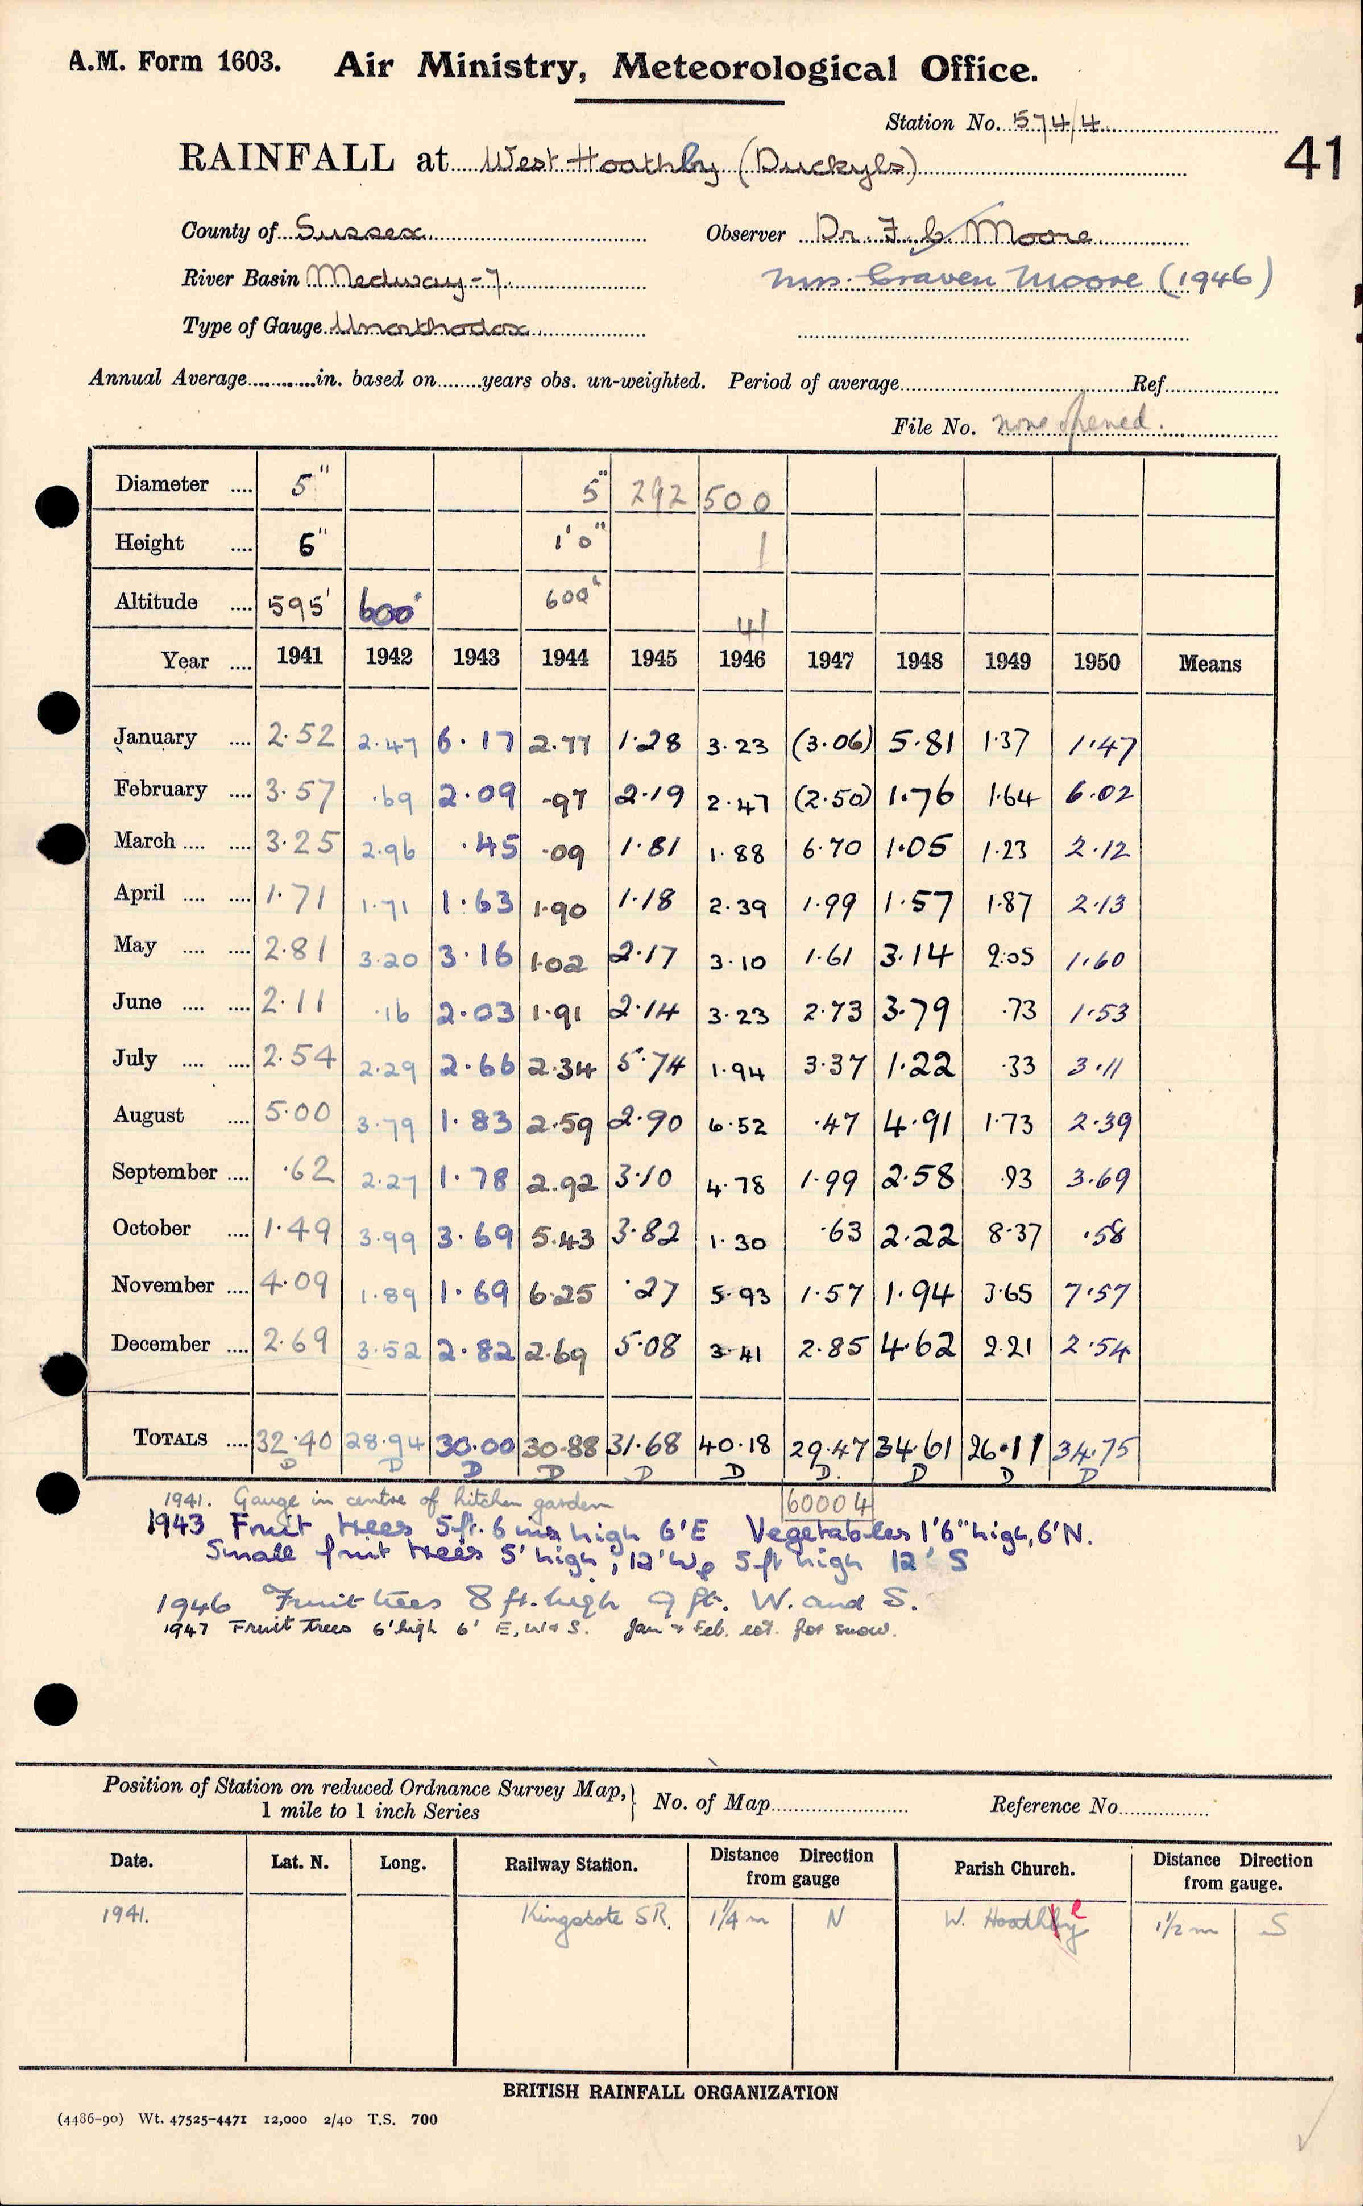 A.M. Form 1603. Air Ministry, Meteorological Office.
Station No. 574/4
41
RAINFALL at West Hoathly (Duckyls)
County of Sussex Observer Dr. F. C. Moore
River Basin Medway-7. Mrs. Craven Moore (1946)
Type of Gauge Unorthodox
Annual Average............in. based on........years obs. un-weighted. Period of average........Ref........
File No. none opened.
Diameter .... 5" 5" 292 500
Height .... 6" 1'0" 1
Altitude .... 595' 600' 600' 41
Year .... 1941 1942 1943 1944 1945 1946 1947 1948 1949 1950 Means
January .... 2.52 2.47 6.17 2.77 1.28 3.23 (3.06) 5.81 1.37 1.47
February .... 3.57 .69 2.09 .97 2.19 2.47 (2.50) 1.76 1.64 6.02
March .... .... 3.25 2.96 .45 .09 1.81 1.88 6.70 1.05 1.23 2.12
April .... .... 1.71 1.71 1.63 1.90 1.18 2.39 1.99 1.57 1.87 2.13
May .... .... 2.81 3.20 3.16 1.02 2.17 3.10 1.61 3.14 2.05 1.60
June .... .... 2.11 .16 2.03 1.91 2.14 3.23 2.73 3.79 .73 1.53
July .... .... 2.54 2.29 2.66 2.34 5.74 1.94 3.37 1.22 .33 3.11
August .... 5.00 3.79 1.83 2.59 2.90 6.52 .47 4.91 1.73 2.39
September .... .62 2.27 1.78 2.92 3.10 4.78 1.99 2.58 .93 3.69
October .... 1.49 3.99 3.69 5.43 3.82 1.30 .63 2.22 8.37 .58
November .... 4.09 1.89 1.69 6.25 .27 5.93 1.57 1.94 3.65 7.57
December .... 2.69 3.52 2.82 2.69 5.08 3.41 2.85 4.62 2.21 2.54
TOTALS .... 32.40 28.94 30.00 30.88 31.68 40.18 29.47 34.61 26.11 34.75
D D D D D D D. D D D
1941. Gauge in centre of kitchen garden 60004
1943 Fruit trees 5ft. 6 ins high 6'E Vegetables 1'6" high, 6'N.
Small fruit trees 5' high, 12'W, 5ft high 12' S
1946 Fruit trees 8 ft. high 9 ft. W. and S.
1947 Fruit Trees 6' high 6' E, W & S. Jan & Feb. est. for snow.
Position of Station on reduced Ordnance Survey Map, } No. of Map........ Reference No........
1 mile to 1 inch Series
Date. Lat. N. Long. Railway Station. Distance Direction from gauge Parish Church. Distance Direction from gauge.
1941. Kingscote SR. 1 1/4 m N W. Hoathly 1 1/2 m S
BRITISH RAINFALL ORGANIZATION
(4486-90) Wt. 47525-4471 12,000 2/40 T.S. 700